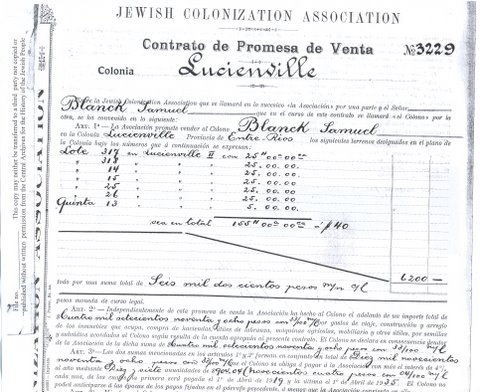 JEWISH COLONIZATION ASSOCIATION
Contrato de Promesa de Venta
№ 3229
Colonia Lucienville
de la Jewish Colonization Association que se llamará en lo sucesivo «la Asociación» por una parte y el Señor
Blanck Samuel que en el curso de este contrato se llamará «el Colono» por la
otra, se ha convenido en lo siguiente:
ART. 1º — La Asociación promete vender al Colono Blanck Samuel
en la Colonia Lucienville Provincia de Entre-Rios los siguientes terrenos designados en el plano de
la Colonia bajo los números que á continuación se expresan:
Lote 317 en Lucienville II con 25 H 00 00 00
" 318 " " " 25. 00. 00.
" 14 " " " 25. 00. 00
" 15 " " " 25. 00. 00
" 25 " " " 25. 00. 00
" 26 " " " 25. 00. 00
Quinta 13 " " " 5. 00. 00
sea en total 155 H 00 00 00 á $ 40
6200 —
todo por una suma total de Seis mil dos cientos pesos m/n c/l
pesos moneda de curso legal.
ART. 2º — Independientemente de esta promesa de venta la Asociación ha hecho al Colono el adelanto de un importe total de
Cuatro mil setecientos noventa y ocho pesos por gastos de viaje, construcción y arreglo
de los inmuebles que ocupa, compra de haciendas, útiles de labranza, máquinas agrícolas, mobiliario y otros útiles, por semillas
y subsidios acordados al Colono según resulta de la cuenta agregada al presente contrato. El Colono se declara en consecuencia deudor
de la Asociación de la dicha suma de Cuatro mil setecientos noventa y ocho pesos con
ART. 3º — Las dos sumas mencionadas en los artículos 1º y 2º forman en conjunto un total de Diez mil novecientos
noventa y ocho pesos
File no.
This copy may neither be transferred to a third party nor copied or
published without written permission from the Central Archives for the History of the Jewish People